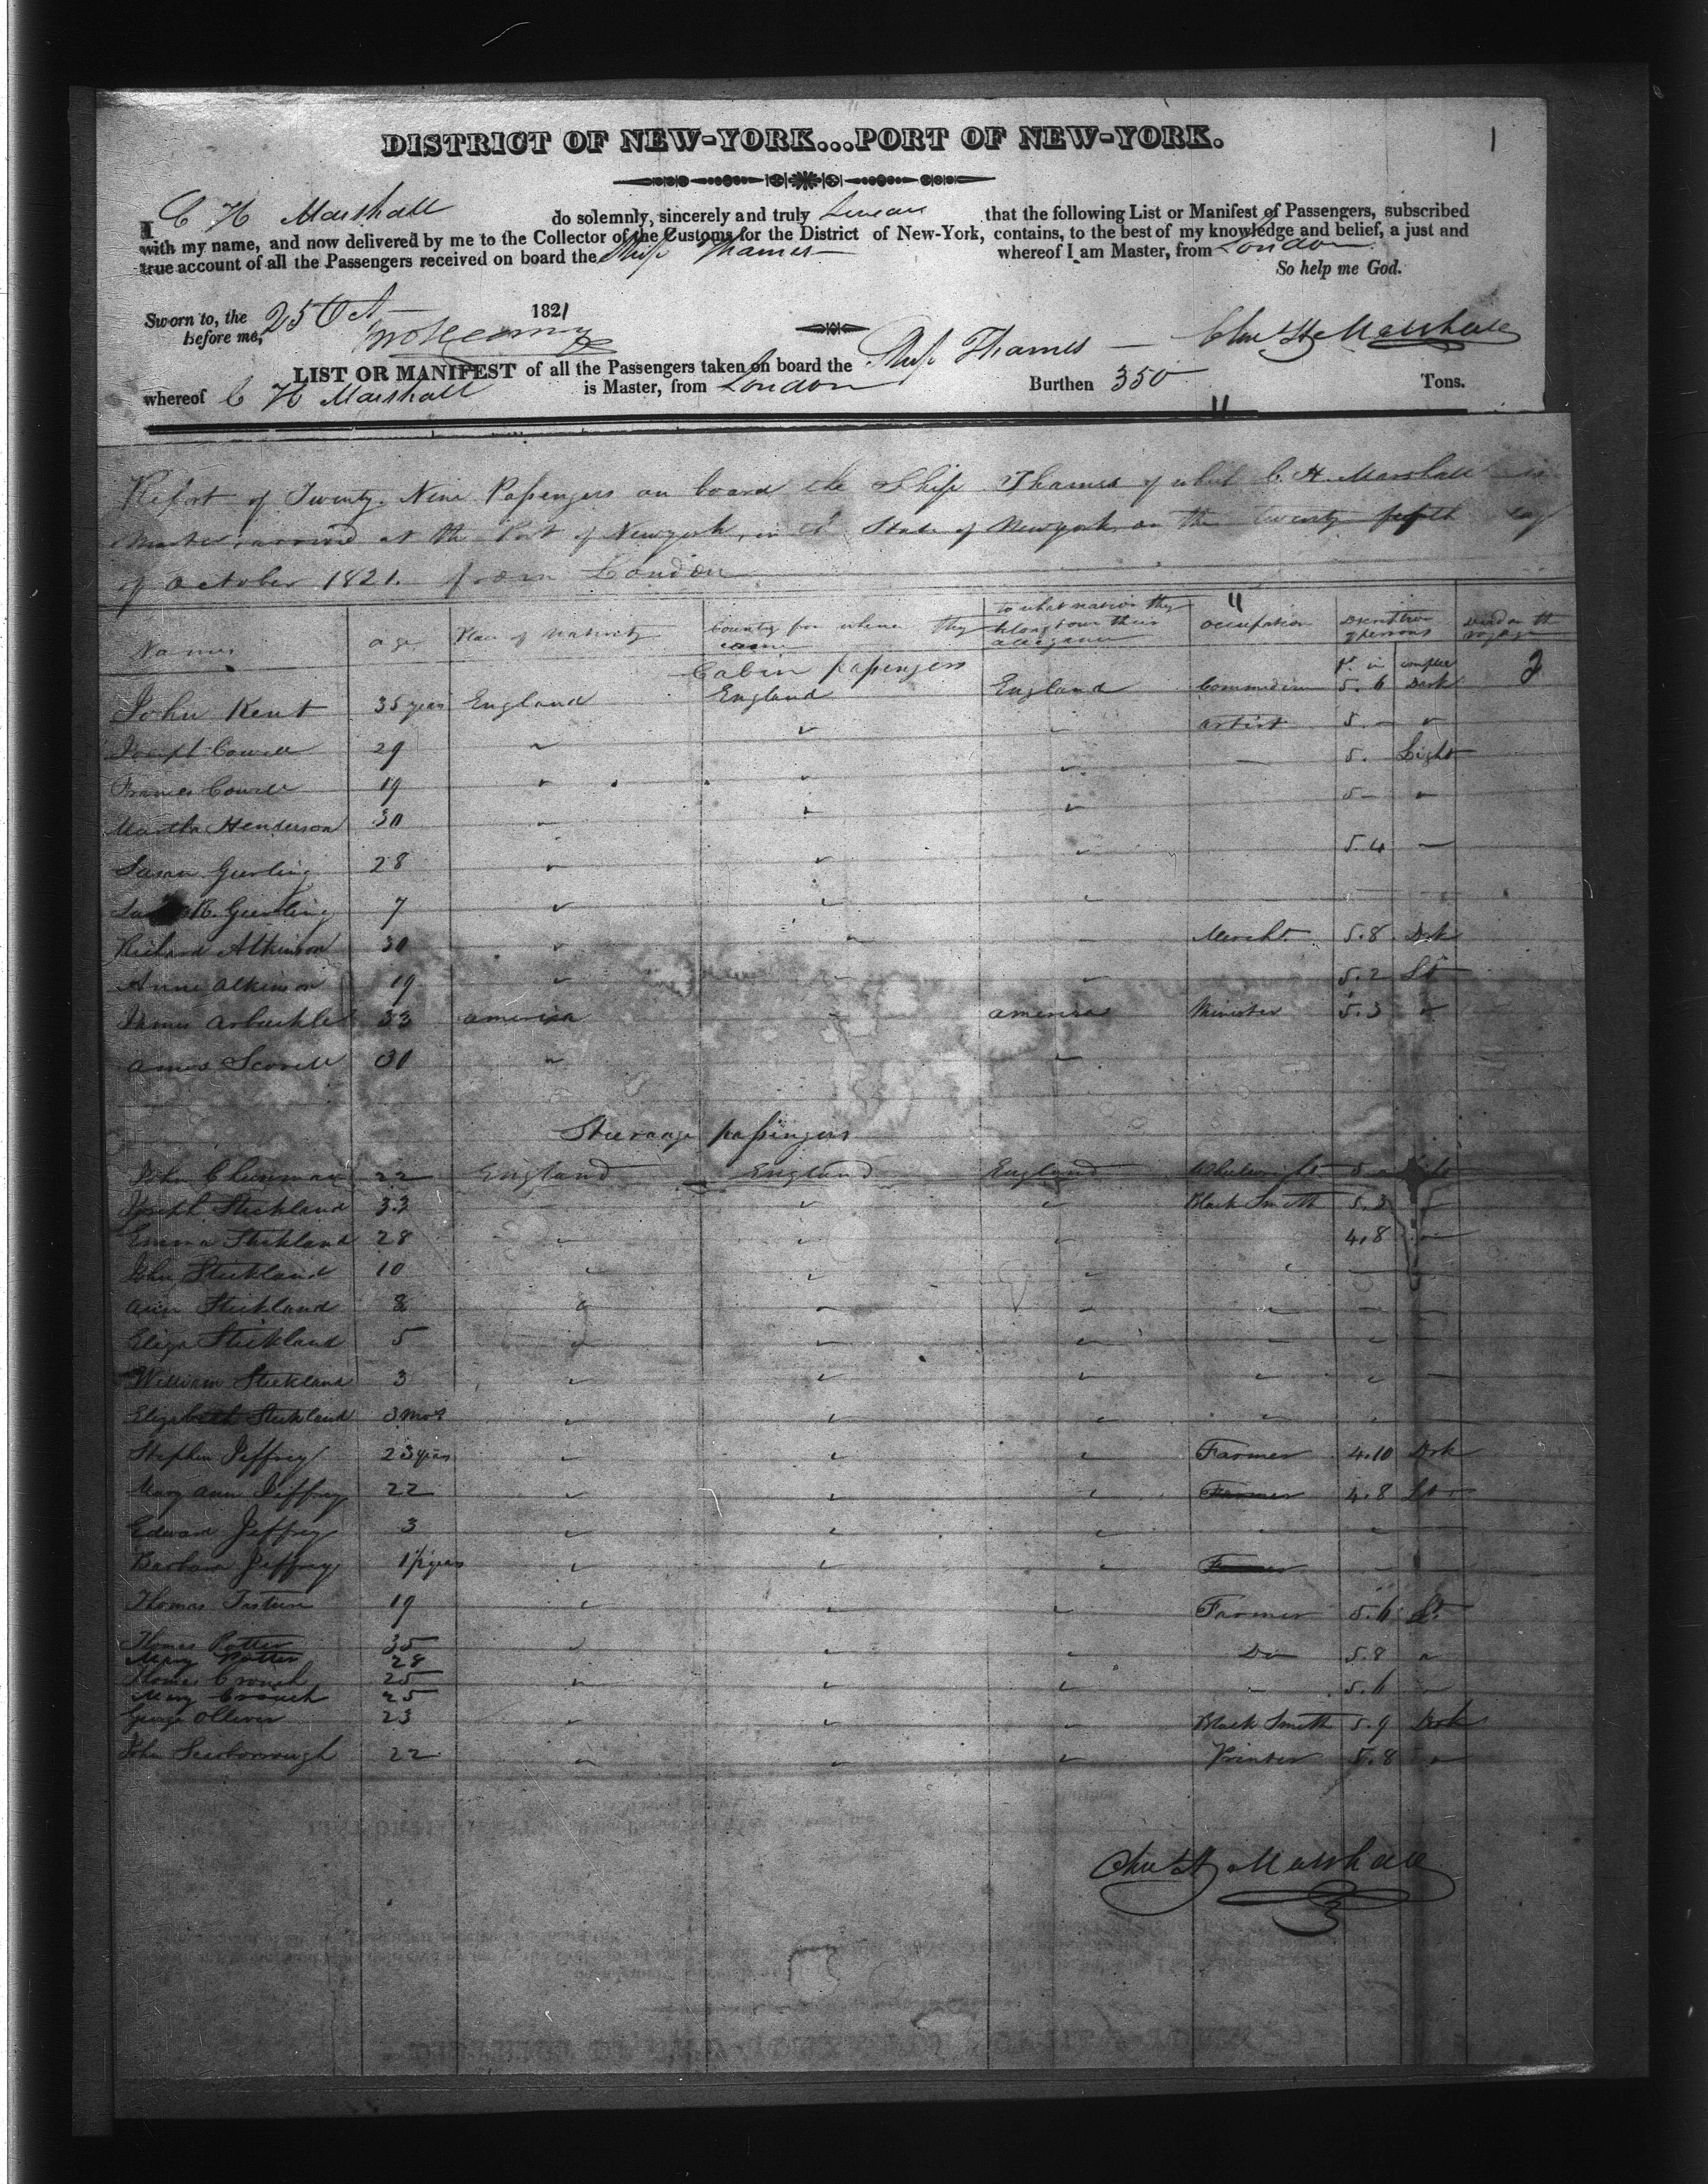 1
DISTRICT OF NEW-YORK...PORT OF NEW-YORK.
I C H Marshall do solemnly, sincerely and truly Swear that the following List or Manifest of Passengers, subscribed
with my name, and now delivered by me to the Collector of the Customs for the District of New-York, contains, to the best of my knowledge and belief, a just and
true account of all the Passengers received on board the Ship Thames whereof I am Master, from London
So help me God.
Sworn to, the 25 Oct 1821
before me,
Chas H Marshall
LIST OR MANIFEST of all the Passengers taken on board the Ship Thames
whereof C H Marshall is Master, from London Burthen 350 Tons.
Report of Twenty Nine Passengers on board the Ship Thames of which C. H. Marshall is
Master, arrived at the Port of Newyork, in the State of Newyork on the twenty fifth day
of October 1821. from London
Names age Place of Nativity Country from whence they came to what nation they belong or owe their allegiance occupation Description of persons died on the voyage
Cabin passengers ft. in complex 2
John Kent 35 years England England England Commedian 5.6 Dark
Joseph Cowell 29 " " " artist 5. - "
Frances Cowell 19 " " " - 5. Light
Martha Henderson 30 " " " 5- "
Susan Gierling 28 " " " 5.4 -
R. Gierling 7 " " "
Richard Atkinson 30 " " - Mercht. 5.8 Drk
Anne Atkinson 19 " " " 5.2 Lt
James Arbuckle 33 america " america Minister 5.3 "
Amos Scovell 30 " "
Steerage passengers
John Chinman 22 England England England Wheelwright 5 Lt
Joseph Stickland 33 " " " Black Smith 5.3 "
Emma Stickland 28 " " " 4.8 "
John Stickland 10 " " " "
Ann Stickland 8 " " " "
Eliza Stickland 5 " " " "
William Stickland 3 " " " "
Elizabeth Stickland 3 mos " " " "
Stephen Jeffrey 23 years " " " Farmer 4.10 Drk
Mary Ann Jeffrey 22 " " " Farmer 4.8 Lt
Edward Jeffrey 3 " " " "
Barbara Jeffrey 1 1/2 years " " " Farmer
Thomas 19 " " " Farmer 5.6 Lt.
Thomas Potter 35 " " " Do 5.8 "
Mary Potter 28
Thomas Crouch 25 " " " " 5.6 "
Mary Crouch 25
George Olliver 23 " " " Black Smith 5.9 Drk
John Scarborough 22 " " " Printer 5.8 "
Chas H Marshall